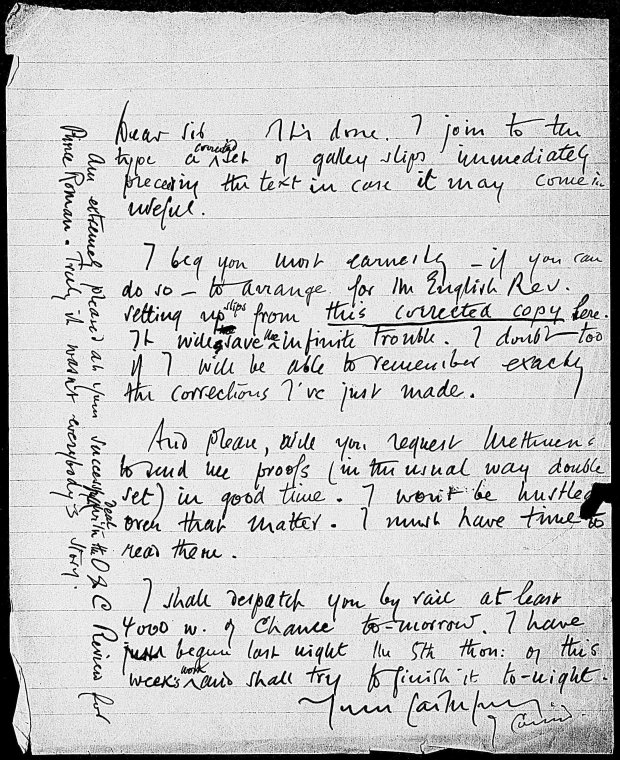 Dear Sir It is done. I join to the
type a corrected set of galley slips immediately
preceding the text in case it may come in
useful.
I beg you most earnestly – if you can
do so – to arrange for the English Rev.
setting up slips from this corrected copy here.
It will save me infinite trouble. I doubt too
if I will be able to remember exactly
the corrections I've just made.
And please, will you request Methuens
to send me proofs (in the usual way double
set) in good time. I won't be hustled
over that matter. I must have time to
read them.
I shall despatch you by rail at least
4000 w. of Chance to-morrow. I have
just begun last night the 5th thou: of this
week's work and shall try to finish it to-night.
Yours
J Conrad.
Am extremely pleased at your successful deal with the O & C Review for
Prince Roman. Truly it wasn't everybody's story.